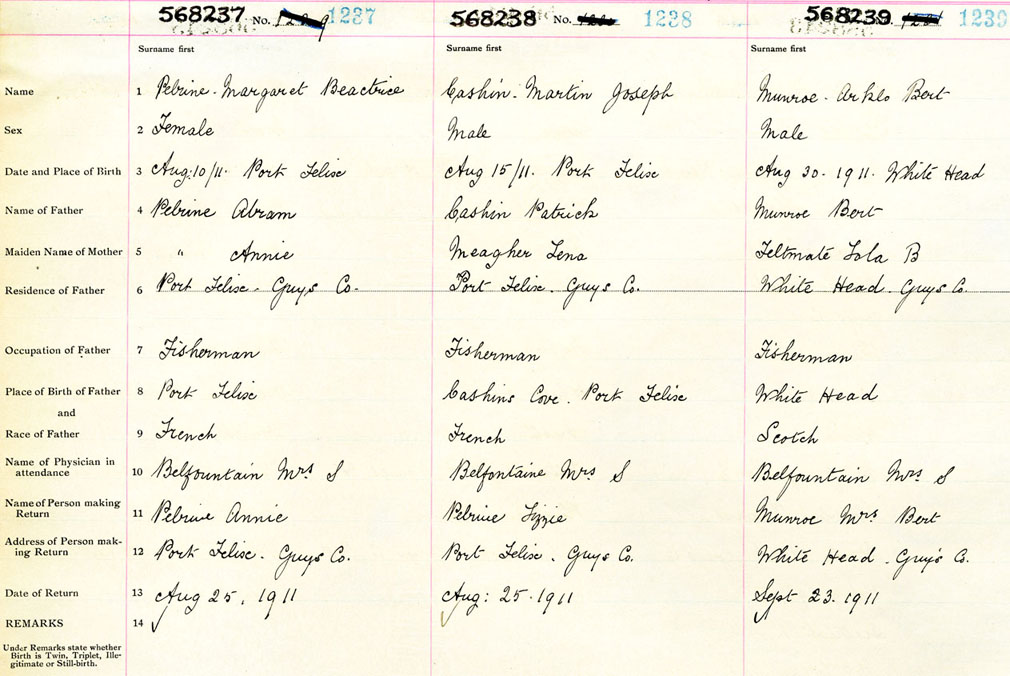 568237 No. 1237 568238 No. 1238 568239 1239
Surname first Surname first Surname first
Name 1 Pelrine - Margaret Beactrice Cashin - Martin Joseph Munroe - Arklo Bert
Sex 2 Female Male Male
Date and Place of Birth 3 Aug: 10/11 - Port Felix Aug 15/11. Port Felix Aug 30 - 1911. White Head
Name of Father 4 Pelrine Abram Cashin Patrick Munroe Bert
Maiden Name of Mother 5 " Annie Meagher Lena Feltmate Lola B
Residence of Father 6 Port Felix - Guys Co - Port Felix. Guys Co. White Head. Guys Co.
Occupation of Father 7 Fisherman Fisherman Fisherman
Place of Birth of Father 8 Port Felix Cashins Cove. Port Felix White Head
and
Race of Father 9 French French Scotch
Name of Physician in
attendance 10 Belfountain Mrs S Belfontaine Mrs S Belfountain Mrs S
Name of Person making
Return 11 Pelrine Annie Pelrine Lizzie Munroe Mrs Bert
Address of Person mak-
ing Return 12 Port Felix - Guys Co. Port Felix. Guys Co. White Head. Guy's Co.
Date of Return 13 Aug 25, 1911 Aug: 25 - 1911 Sept 23. 1911
REMARKS 14
Under Remarks state whether
Birth is Twin, Triplet, Ille-
gitimate or Still-birth.